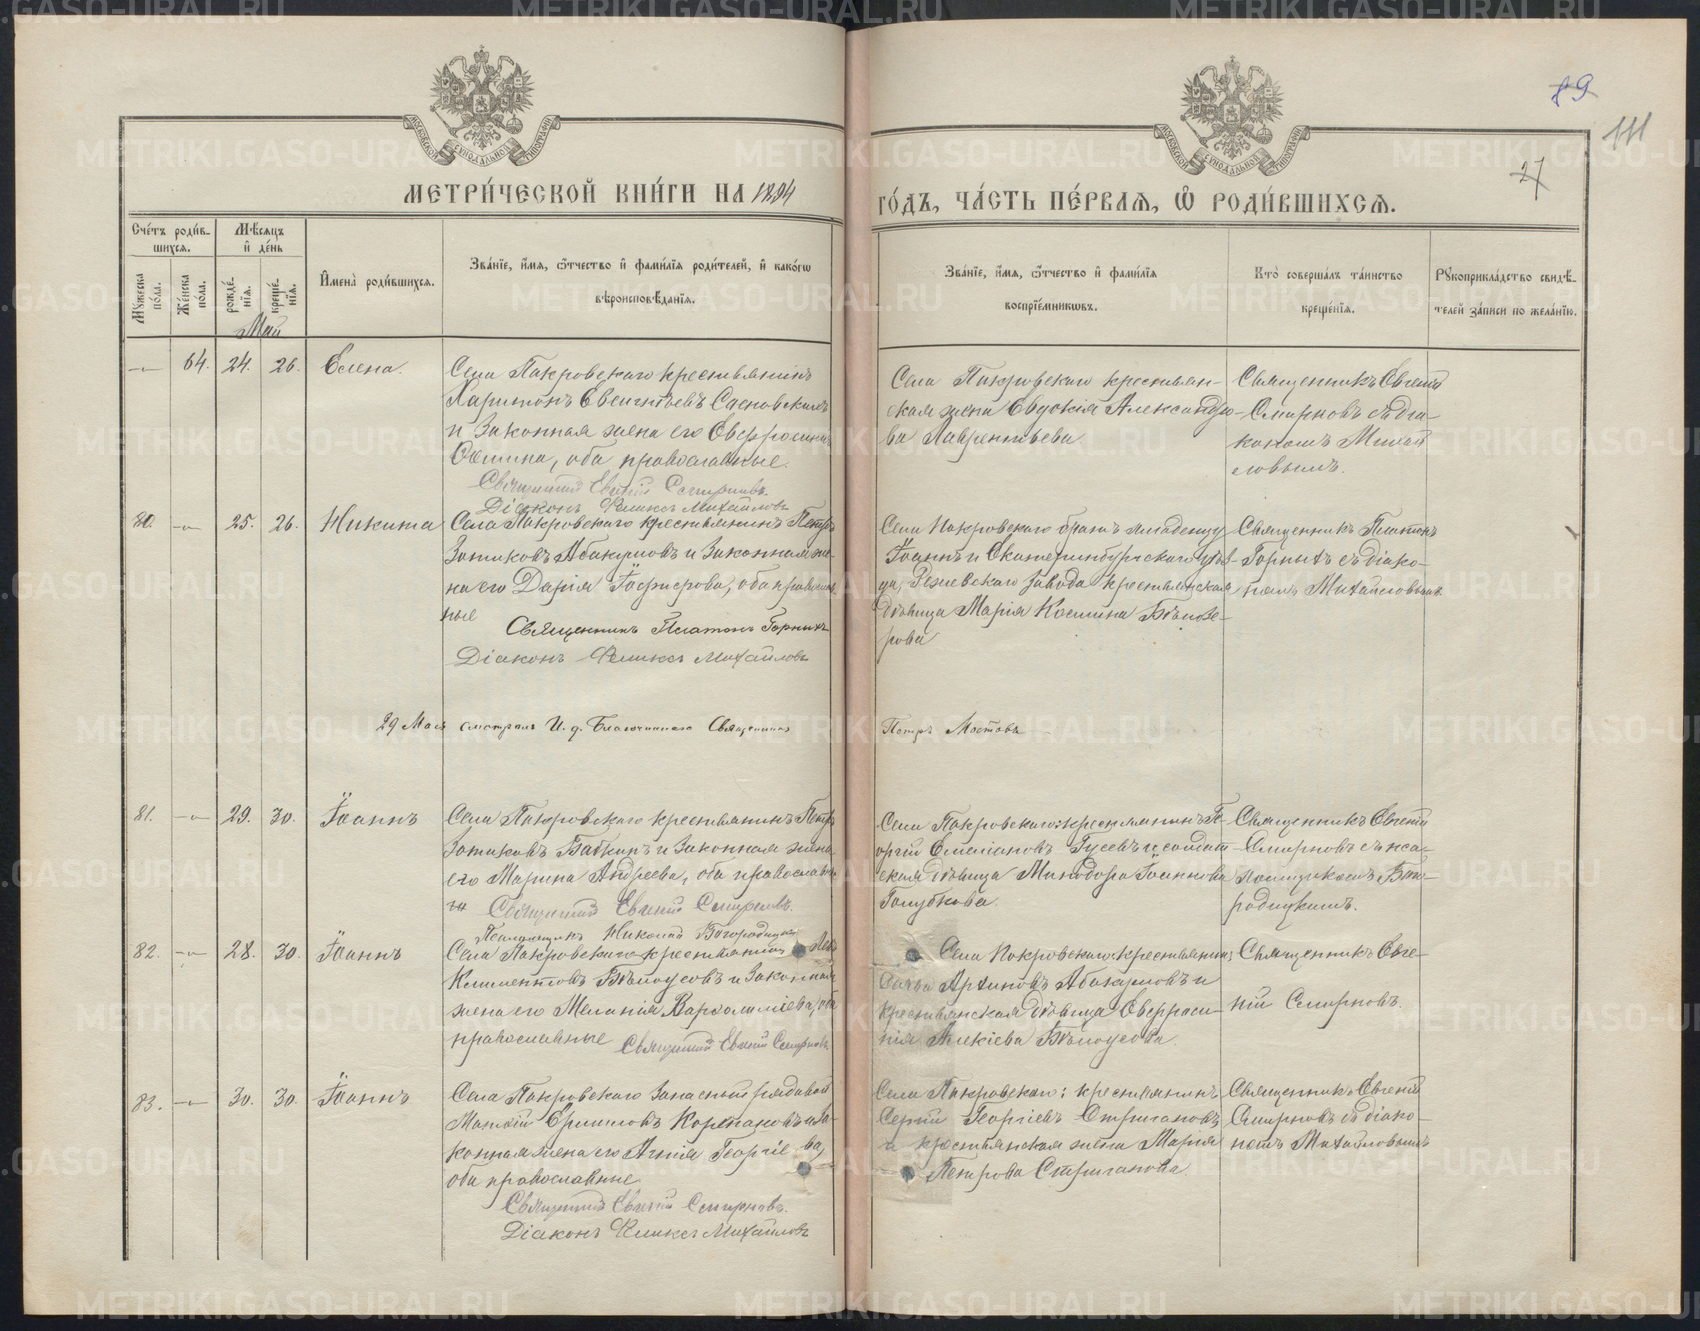 89
111
27
МЕТРИ́ЧЕСКОЙ КНИ́ГИ НА 1894
ГО́ДЪ, ЧА́СТЬ ПЕ́РВАЯ, Ѡ РОДИ́ВШИХСЯ.
Сче́тъ роди́в-
шихся.
Мѣ́сяцъ
и҆ де́нь
Мꙋжеска по́ла.
Же́нска по́ла.
рожде́-
нїѧ.
креще́-
нїѧ.
И҆мена̀ роди́вшихся.
Зва́нїе, и҆́мѧ, ѻ҆́тчество и҆ фами́лїѧ роди́телей, и҆ како́гѡ
вѣроисповѣ́данїѧ.
Зва́нїе, и҆́мѧ, ѻ҆́тчество и҆ фами́лїѧ
воспрїе́мниковъ.
Кто̀ соверша́лъ та́инство
креще́нїѧ.
Рꙋкоприкла́дство свидѣ́-
телей за́писи по жела́нїю.
Май
— 64. 24. 26. Елена.
Села Покровскаго крестьянинъ
Харитонъ
и законная жена его Евфросинія
оба православные.
Священникъ Евгеній Смирновъ.
Діаконъ Феликсъ Михайловъ
Села Покровскаго крестьян-
ская жена Евдокія Александро-
ва Лаврентьева.
Священникъ Евгеній
Смирновъ съ діа-
кономъ Михай
ловымъ.
80. — 25. 26. Никита
Села Покровскаго крестьянинъ Петръ
Зотиковъ Абакумовъ и законная же-
на его Дарія оба православ-
ные
Священникъ Платонъ Горныхъ
Діаконъ Феликсъ Михайловъ
Села Покровскаго братъ младенцу
Іоаннъ и Екатеринбургскаго уѣз-
да, Режевскаго завода крестьянская
дѣвица Марія Космина Бѣлозе-
рова
Священникъ Платонъ
Горныхъ съ діако-
номъ Михайловымъ
29 Мая смотрѣлъ И. д. Благочиннаго Священникъ
Петръ Мостовъ
81. — 29. 30. Іоаннъ
Села Покровскаго крестьянинъ Петръ
Зотиковъ Бабкинъ и законная жена
его Марина Андреева, оба православн
ые Священникъ Евгеній Смирновъ.
Псаломщикъ Николай Богородицкій
Села Покровскаго: крестьянинъ Ге-
оргій Емеліановъ Гусевъ и солдат-
ская дѣвица Минодора Іоаннова
Голубкова.
Священникъ Евгеній
Смирновъ съ пса-
ломщикомъ Бого-
родицкимъ.
82. — 28. 30. Іоаннъ
Села Покровскаго крестьянинъ
Климентовъ Бѣлоусовъ и законная
жена его Меланія Варѳоломіева, оба
православные Священникъ Евгеній Смирновъ
Села Покровскаго: крестьянинъ
Архиповъ Абакумовъ и
крестьянская дѣвица Евфроси-
нія Алексіева Бѣлоусова.
Священникъ Евге-
ній Смирновъ.
83. — 30. 30. Іоаннъ
Села Покровскаго Запасный рядовой
Матѳій Ермиловъ Корепановъ и за-
конная жена его Агнія Георгіева,
оба православные.
Священникъ Евгеній Смирновъ.
Діаконъ Феликсъ Михайловъ
Села Покровскаго: крестьянинъ
Сергій Георгіевъ Стригановъ
и крестьянская жена Марія
Петрова Стриганова
Священникъ Евгеній
Смирновъ съ діако-
номъ Михайловымъ
METRIKI.GASO-URAL.RU